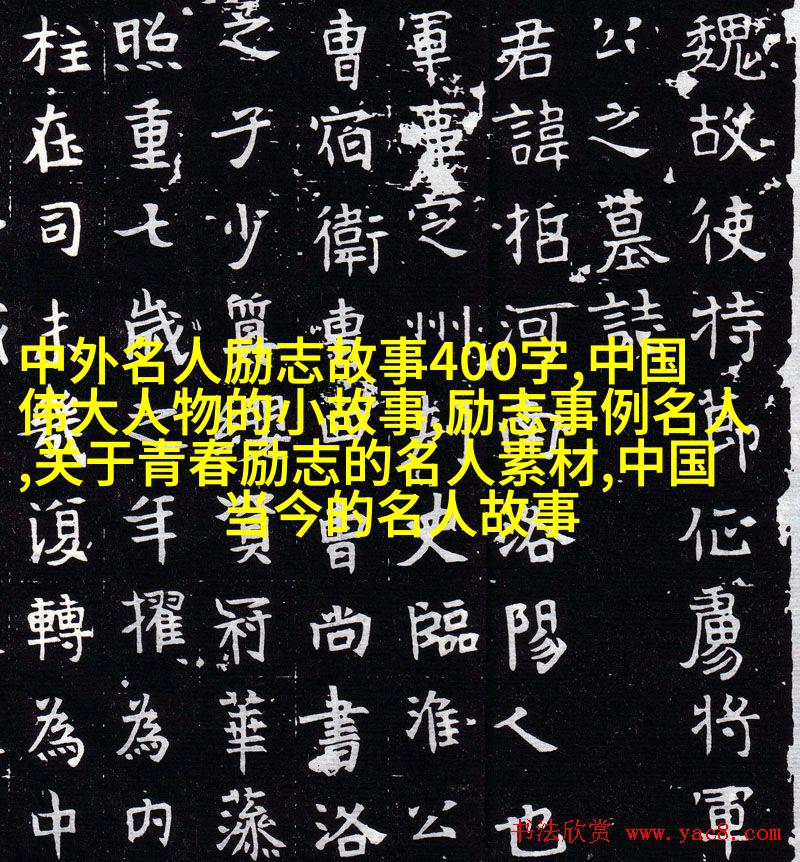 魏故使持節征虜將軍
公之墓誌
君諱河南洛陽人也
軍事定州刺史臨淮公
曹宿衛曹尚書洛
之子少質冠華藻
照重七歲之年擢為內
柱在司復轉為中
中外名人励志故事400字,中国
伟大人物的小故事,励志事例名人
,关于青春励志的名人素材,中国
当今的名人故事
书法欣赏 www.yac8.com